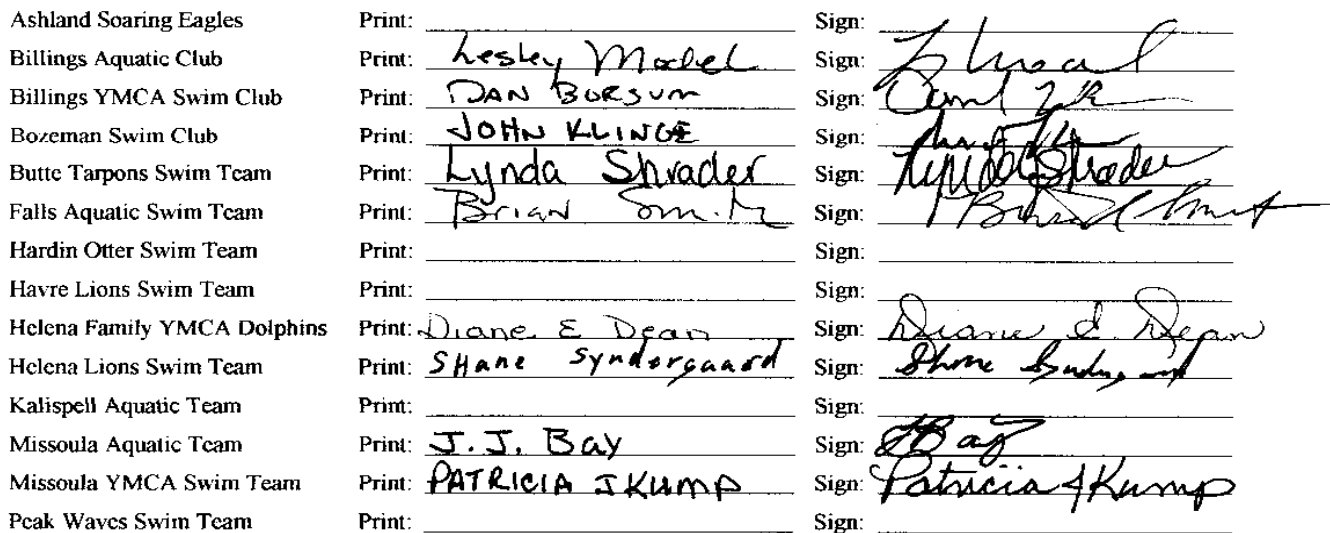 Ashland Soaring Eagles Print: Sign:
Billings Aquatic Club Print: Lesley Mabel Sign:
Billings YMCA Swim Club Print: DAN BORSUM Sign:
Bozeman Swim Club Print: JOHN KLINGE Sign:
Butte Tarpons Swim Team Print: Lynda Shrader Sign: Lynda Shrader
Falls Aquatic Swim Team Print: Brian Smith Sign:
Hardin Otter Swim Team Print: Sign:
Havre Lions Swim Team Print: Sign:
Helena Family YMCA Dolphins Print: Diane E Dean Sign: Diane E. Dean
Helena Lions Swim Team Print: SHane Syndergaard Sign: Shane
Kalispell Aquatic Team Print: Sign:
Missoula Aquatic Team Print: J.J. Bay Sign: JJBay
Missoula YMCA Swim Team Print: PATRICIA J KUMP Sign: Patricia J Kump
Peak Waves Swim Team Print: Sign: